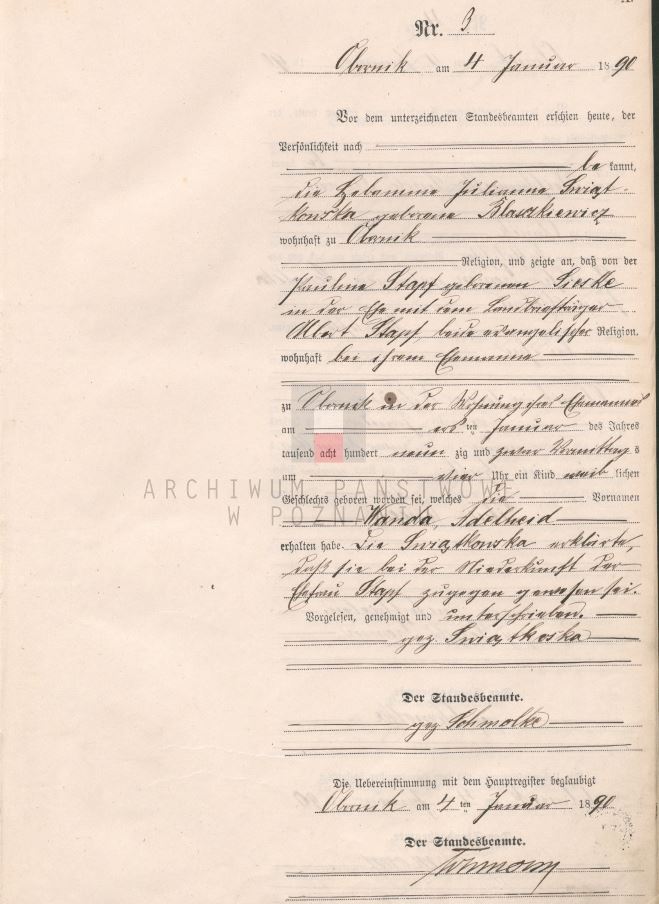 Nr. 3.
Obornik am 4 Januar 1890
Vor dem unterzeichneten Standesbeamten erschien heute, der
Persönlichkeit nach
be kannt,
die Hebamme Julianna Swiąt-
kowska geborene Blaszkiewicz
wohnhaft zu Obornik
Religion, und zeigte an, daß von der
Pauline Stapf geborenen Sieske
in der Ehe mit dem Landbriefträger
Albert Stapf beide evangelischer Religion,
wohnhaft bei ihrem Ehemanne
zu Obornik in der Wohnung ihres Ehemannes
am ers ten Januar des Jahres
tausend acht hundert neun zig und zwar Vormittag s
um vier Uhr ein Kind weib lichen
Geschlechts geboren worden sei, welches die Vornamen
Wanda, Adelheid
erhalten habe. Die Swiątkowska erklärte,
daß sie bei der Niederkunft der
Ehefrau Stapf zugegen gewesen sei.
Vorgelesen, genehmigt und unterschrieben.
gez. Swiątkoska
Der Standesbeamte.
gez Schmolke
Die Uebereinstimmung mit dem Hauptregister beglaubigt
Obornik am 4 ten Januar 1890
Der Standesbeamte.
ARCHIWUM PAŃSTWOWE
W POZNANIU